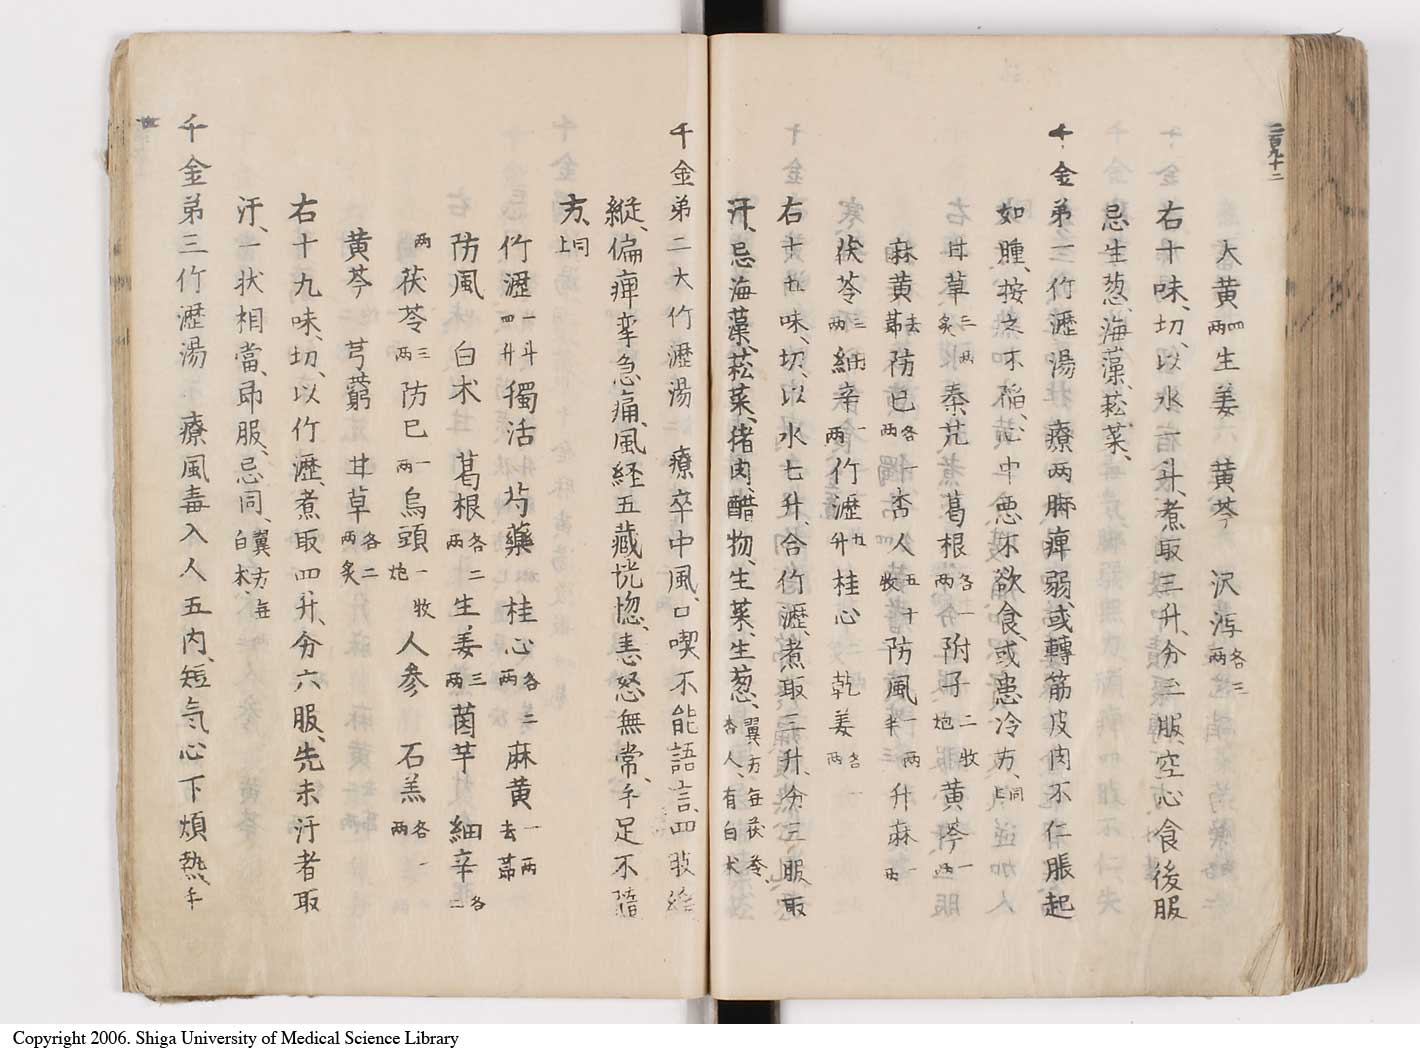 二百九十二
大黄四両生姜 黄芩 沢瀉各三両
右十味、切、以水一斗、煮取三升、分三服、空心食後服
忌生葱、海藻、菘菜、
千金第一竹瀝湯療両脚痺弱、或轉筋皮肉不仁脹起
如腫、按之不陷、心中悪不欲食、或患冷方、同上
甘草二両炙秦艽 葛根 黄芩各一両附子二枚炮
麻黄去節防已各一両杏人五十枚防風一両半升麻一両
茯苓三両細辛一両竹瀝五升桂心 乾姜各一両
右十六味、切、以水七升、合竹瀝、煮取三升、分三服取
汗、忌海藻、菘菜、猪肉、醋物、生菜、生葱、翼方毎茯苓杏人、有白朮
千金弟二大竹瀝湯 療卒中風、口喫不能語言、四肢緩
縦、偏痺挛急痛、風経五藏、恍惚、恚怒無常、手足不隨
方、同上
竹瀝一斗四升獨活 芍藥 桂心各二両麻黄一両去節
防風 白朮 葛根各二両生姜三両茵芋 細辛各二
両茯苓三両防已一両烏頭一枚炮人参 石羔各一両
黄芩 芎藭 甘草各二両炙
右十九味、切、以竹瀝、煮取四升、分六服、先未汗者取
汗、一状相當、即服、忌同、冀方毎白朮、
千金弟三竹瀝湯 療風毒入人五内、短気心下煩熱、手
Copyright 2006. Shiga University of Medical Science Library